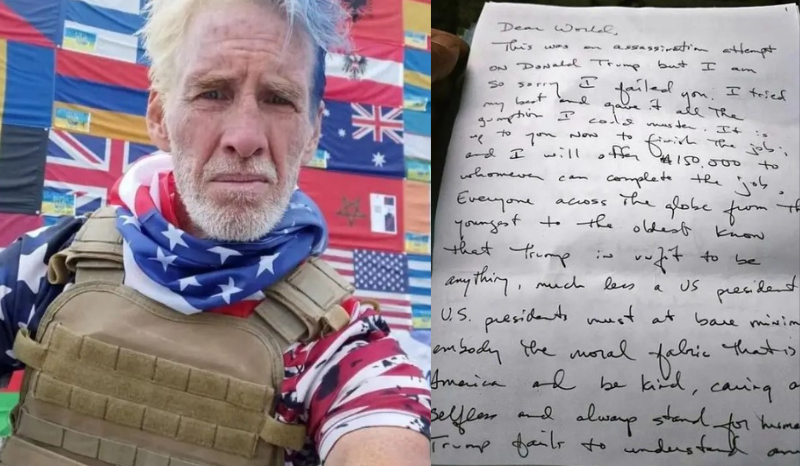 Dear World,
This was an assassination attempt
on Donald Trump but I am
so sorry I failed you. I tried
my best and gave it all the
gumption I could muster. It is
up to you now to finish the job;
and I will offer $150,000 to
whomever can complete the job.
Everyone across the globe from th
youngest to the oldest know
that Trump is unfit to be
anything, much less a US president
U.S. presidents must at bare minim
embody the moral fabric that is
America and be kind, caring a
selfless and always stand for human
Trump fails to understand any